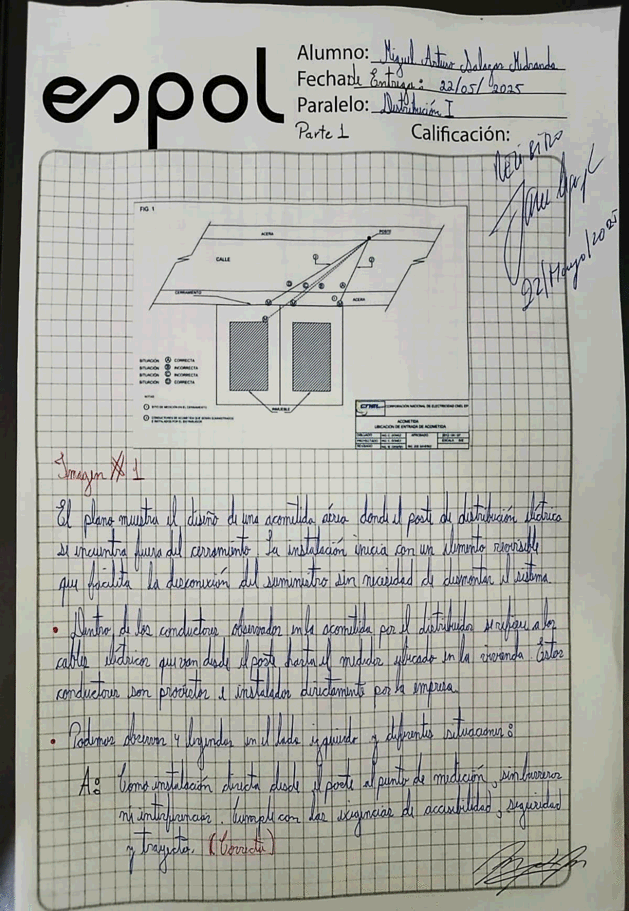 espol
Alumno: Miguel Arturo Salazar Medranda
Fecha de Entrega: 22/05/2025
Paralelo: Distribución I
Parte 1 Calificación:
22/Mayo/2025
FIG. 1
ACERA
POSTE
CALLE
CERRAMIENTO
ACERA
SITUACIÓN A CORRECTA
SITUACIÓN B INCORRECTA
SITUACIÓN C INCORRECTA
SITUACIÓN D CORRECTA
NOTAS
1 SITIO DE MEDICIÓN EN EL CERRAMIENTO
2 CONDUCTORES DE ACOMETIDA QUE SERÁN SUMINISTRADOS
E INSTALADOS POR EL DISTRIBUIDOR
INMUEBLE
CNEL CORPORACIÓN NACIONAL DE ELECTRICIDAD CNEL EP
ACOMETIDA
UBICACIÓN DE ENTRADA DE ACOMETIDA
Imagen # 1
El plano muestra el diseño de una acometida aérea donde el poste de distribución eléctrica
se encuentra fuera del cerramiento. La instalación inicia con un elemento revisible
que facilita la desconexión del suministro sin necesidad de desmontar el sistema.
• Dentro de los conductores observados en la acometida por el distribuidor se refiere a los
cables eléctricos que van desde el poste hasta el medidor ubicado en la vivienda. Estos
conductores son provistos e instalados directamente por la empresa.
• Podemos observar 4 leyendas en el lado izquierdo y diferentes situaciones:
A: Como instalación directa desde el poste al punto de medición, sin barreras
ni interferencias. Cumple con las exigencias de accesibilidad, seguridad
y trayecto. (Correcta)